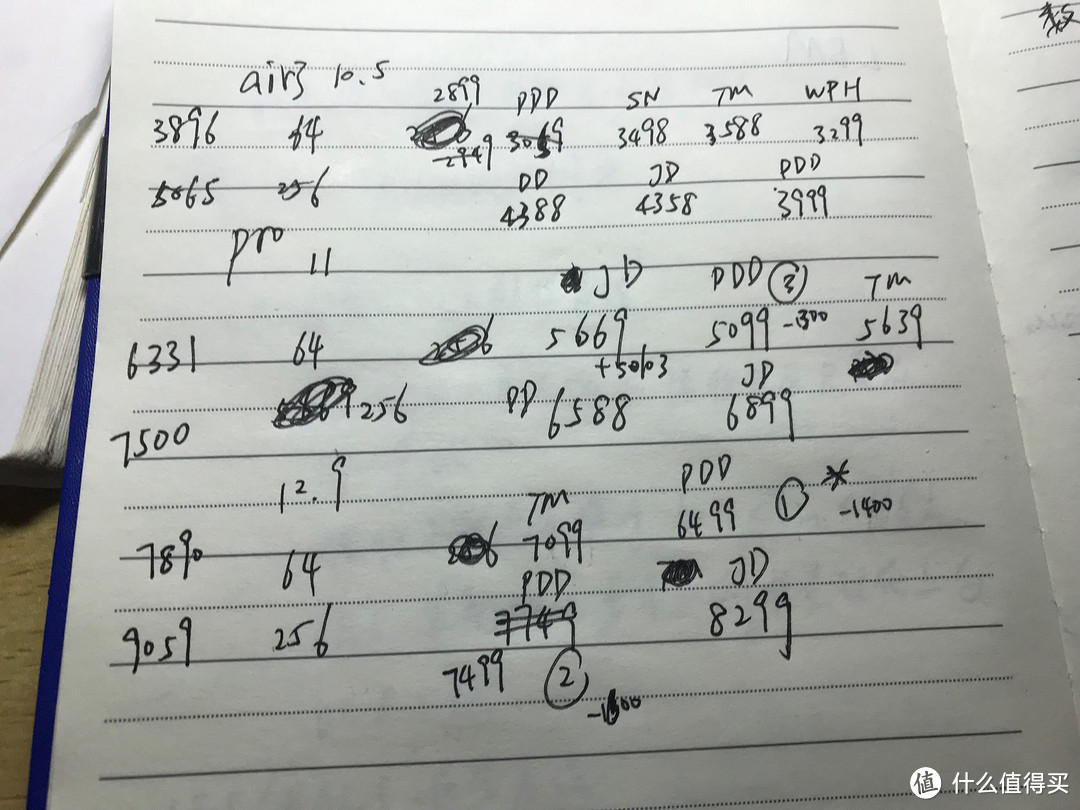 数
air3 10.5
2899 PDD SN TM WPH
3896 64 3498 3588 3299
2949
DD JD PDD
5065 256 4388 4358 3999
pro 11
JD PDD ③ TM
6331 64 5669 5099 -300 5639
JD
7500 256 PD 6588 6899
12.9
TM PDD
7890 64 7099 6499 ① * -1400
PDD JD
9059 256 7749 8299
7499 ②
值 什么值得买